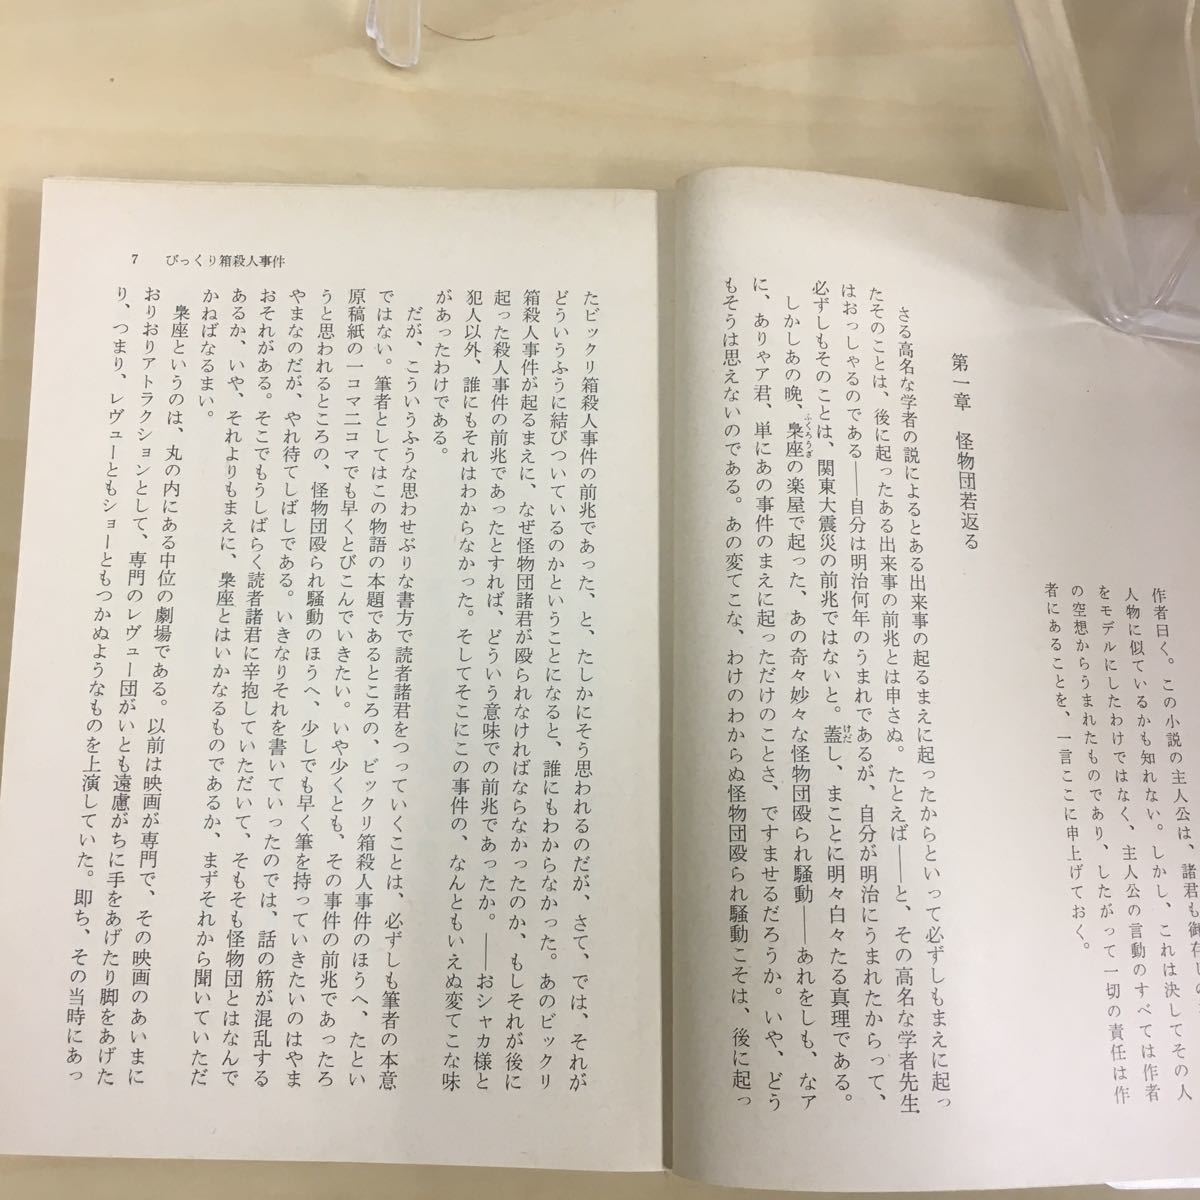 作者曰く。この小説の主人公は、諸君も御存じの
人物に似ているかも知れない。しかし、これは決してその人
をモデルにしたわけではなく、主人公の言動のすべては作者
の空想からうまれたものであり、したがって一切の責任は作
者にあることを、一言ここに申上げておく。
第一章 怪物団若返る
さる高名な学者の説によるとある出来事の起るまえに起ったからといって必ずしもまえに起っ
たそのことは、後に起ったある出来事の前兆とは申さぬ。たとえば――と、その高名な学者先生
はおっしゃるのである――自分は明治何年のうまれであるが、自分が明治にうまれたからって、
必ずしもそのことは、関東大震災の前兆ではないと。蓋し、まことに明々白々たる真理である。
しかしあの晩、梟座の楽屋で起った、あの奇々妙々な怪物団殴られ騒動――あれをしも、なア
に、ありゃア君、単にあの事件のまえに起っただけのことさ、ですませるだろうか。いや、どう
もそうは思えないのである。あの変てこな、わけのわからぬ怪物団殴られ騒動こそは、後に起っ
7 びっくり箱殺人事件
たビックリ箱殺人事件の前兆であった、と、たしかにそう思われるのだが、さて、では、それが
どういうふうに結びついているのかということになると、誰にもわからなかった。あのビックリ
箱殺人事件が起るまえに、なぜ怪物団諸君が殴られなければならなかったのか、もしそれが後に
起った殺人事件の前兆であったとすれば、どういう意味での前兆であったか。――おシャカ様と
犯人以外、誰にもそれはわからなかった。そしてそこにこの事件の、なんともいえぬ変てこな味
があったわけである。
だが、こういうふうな思わせぶりな書方で読者諸君をつっていくことは、必ずしも筆者の本意
ではない。筆者としてはこの物語の本題であるところの、ビックリ箱殺人事件のほうへ、たとい
原稿紙の一コマ二コマでも早くとびこんでいきたい。いや少くとも、その事件の前兆であったろ
うと思われるところの、怪物団殴られ騒動のほうへ、少しでも早く筆を持っていきたいのはやま
やまなのだが、やれ待てしばしである。いきなりそれを書いていったのでは、話の筋が混乱する
おそれがある。そこでもうしばらく読者諸君に辛抱していただいて、そもそも怪物団とはなんで
あるか、いや、それよりもまえに、梟座とはいかなるものであるか、まずそれから聞いていただ
かねばなるまい。
梟座というのは、丸の内にある中位の劇場である。以前は映画が専門で、その映画のあいまに
おりおりアトラクションとして、専門のレヴュー団がいとも遠慮がちに手をあげたり脚をあげた
り、つまり、レヴューともショーともつかぬようなものを上演していた。即ち、その当時にあっ